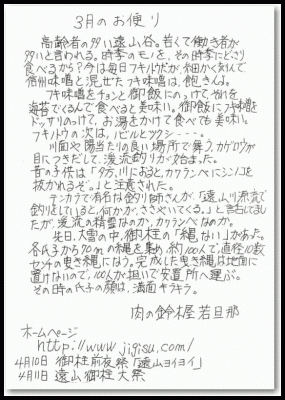 3月のお便り
高齢者の多い遠山谷。若くて働き者が
多いと言われる。時季のモノを、その時季にどさり
食べるから?今は毎日フキノトウだが、細かく刻んで
信州味噌と混ぜたフキ味噌は、飽きんよ。
フキ味噌をチョンと御飯にのっけて、それを
海苔でくるんで食べると美味い。御飯にフキ味噌を
ドッサリのっけて、お湯をかけて食べても美味い。
フキノトウの次は、ノビルとツクシ・・・・。
川面や陽当たりの良い場所で舞うカゲロウが
目につきだして、渓流釣りが始まった。
昔の子供は「夕方、川におるとカワランベにシンノコを
抜かれるぞ。」と注意された。
テンカラで有名な釣り師さんが、「遠山川源流で
釣りをしていると、何かが、ささやいてくる。」と言われてまし
たが、渓流の精霊なのか、カワランベなのか。
先日、大雪の中、御柱の「縄ない」があった。
各氏子から70mの縄を集め、約100人で、直径10数
センチの曳き縄になう。完成した曳き縄は地面に
置けないので、100人が担いで安置所へ運ぶ。
その時の氏子の顔は、満面キラキラ。
肉の鈴木屋 若旦那
ホームページ
http://www.jigisu.com/
4月10日 御柱前夜祭「遠山ヨイヨイ」
4月11日 遠山御柱大祭